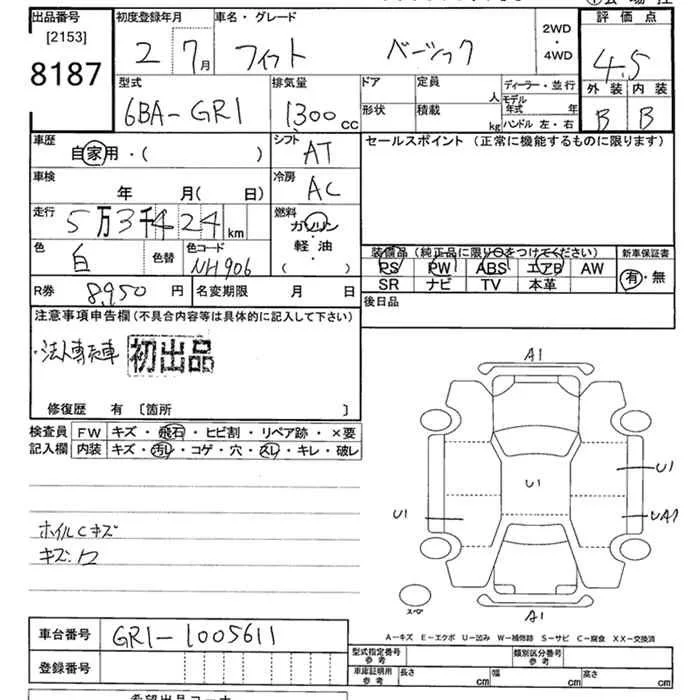 出品番号 初度登録年月 車名・グレード 評価点
[2153]
8187
2 7月 フィット ベーシック 2WD・4WD 4.5
型式 排気量 ドア 定員 ディーラー・並行 外装 内装
6BA-GR1 1300cc 人 モデル年式 年 B B
形状 積載 kg ハンドル 左・右
車歴 シフト セールスポイント (正常に機能するものに限ります)
自家用・( ) AT
車検 冷房
年 月( 日) AC
走行 燃料
5万3千424km ガソリン
色 色替 色コード 軽油 装備品 (純正品に限り○をつけてください) 新車保証書
白 NH906 ( ) PS PW ABS エアB AW 有・無
SR ナビ TV 本革
R券 8,950円 名変期限 月 日 後日品
注意事項申告欄(不具合内容等は具体的に記入して下さい)
初出品
A1
修復歴 有 〔箇所 〕
検査員 FW キズ・飛石・ヒビ割・リペア跡・×要
記入欄 内装 キズ・汚レ・コゲ・穴・スレ・キレ・破レ
U1
U1
U1 UA1
ホイルCキズ
スペア
A1
車台番号 GR1-1005611
A-キズ E-エクボ U-凹み W-補修跡 S-サビ C-腐食 XX-交換済
登録番号 型式指定番号 参考 類別区分番号 参考
車庫証明用 参考 長さ cm 幅 cm 高さ cm